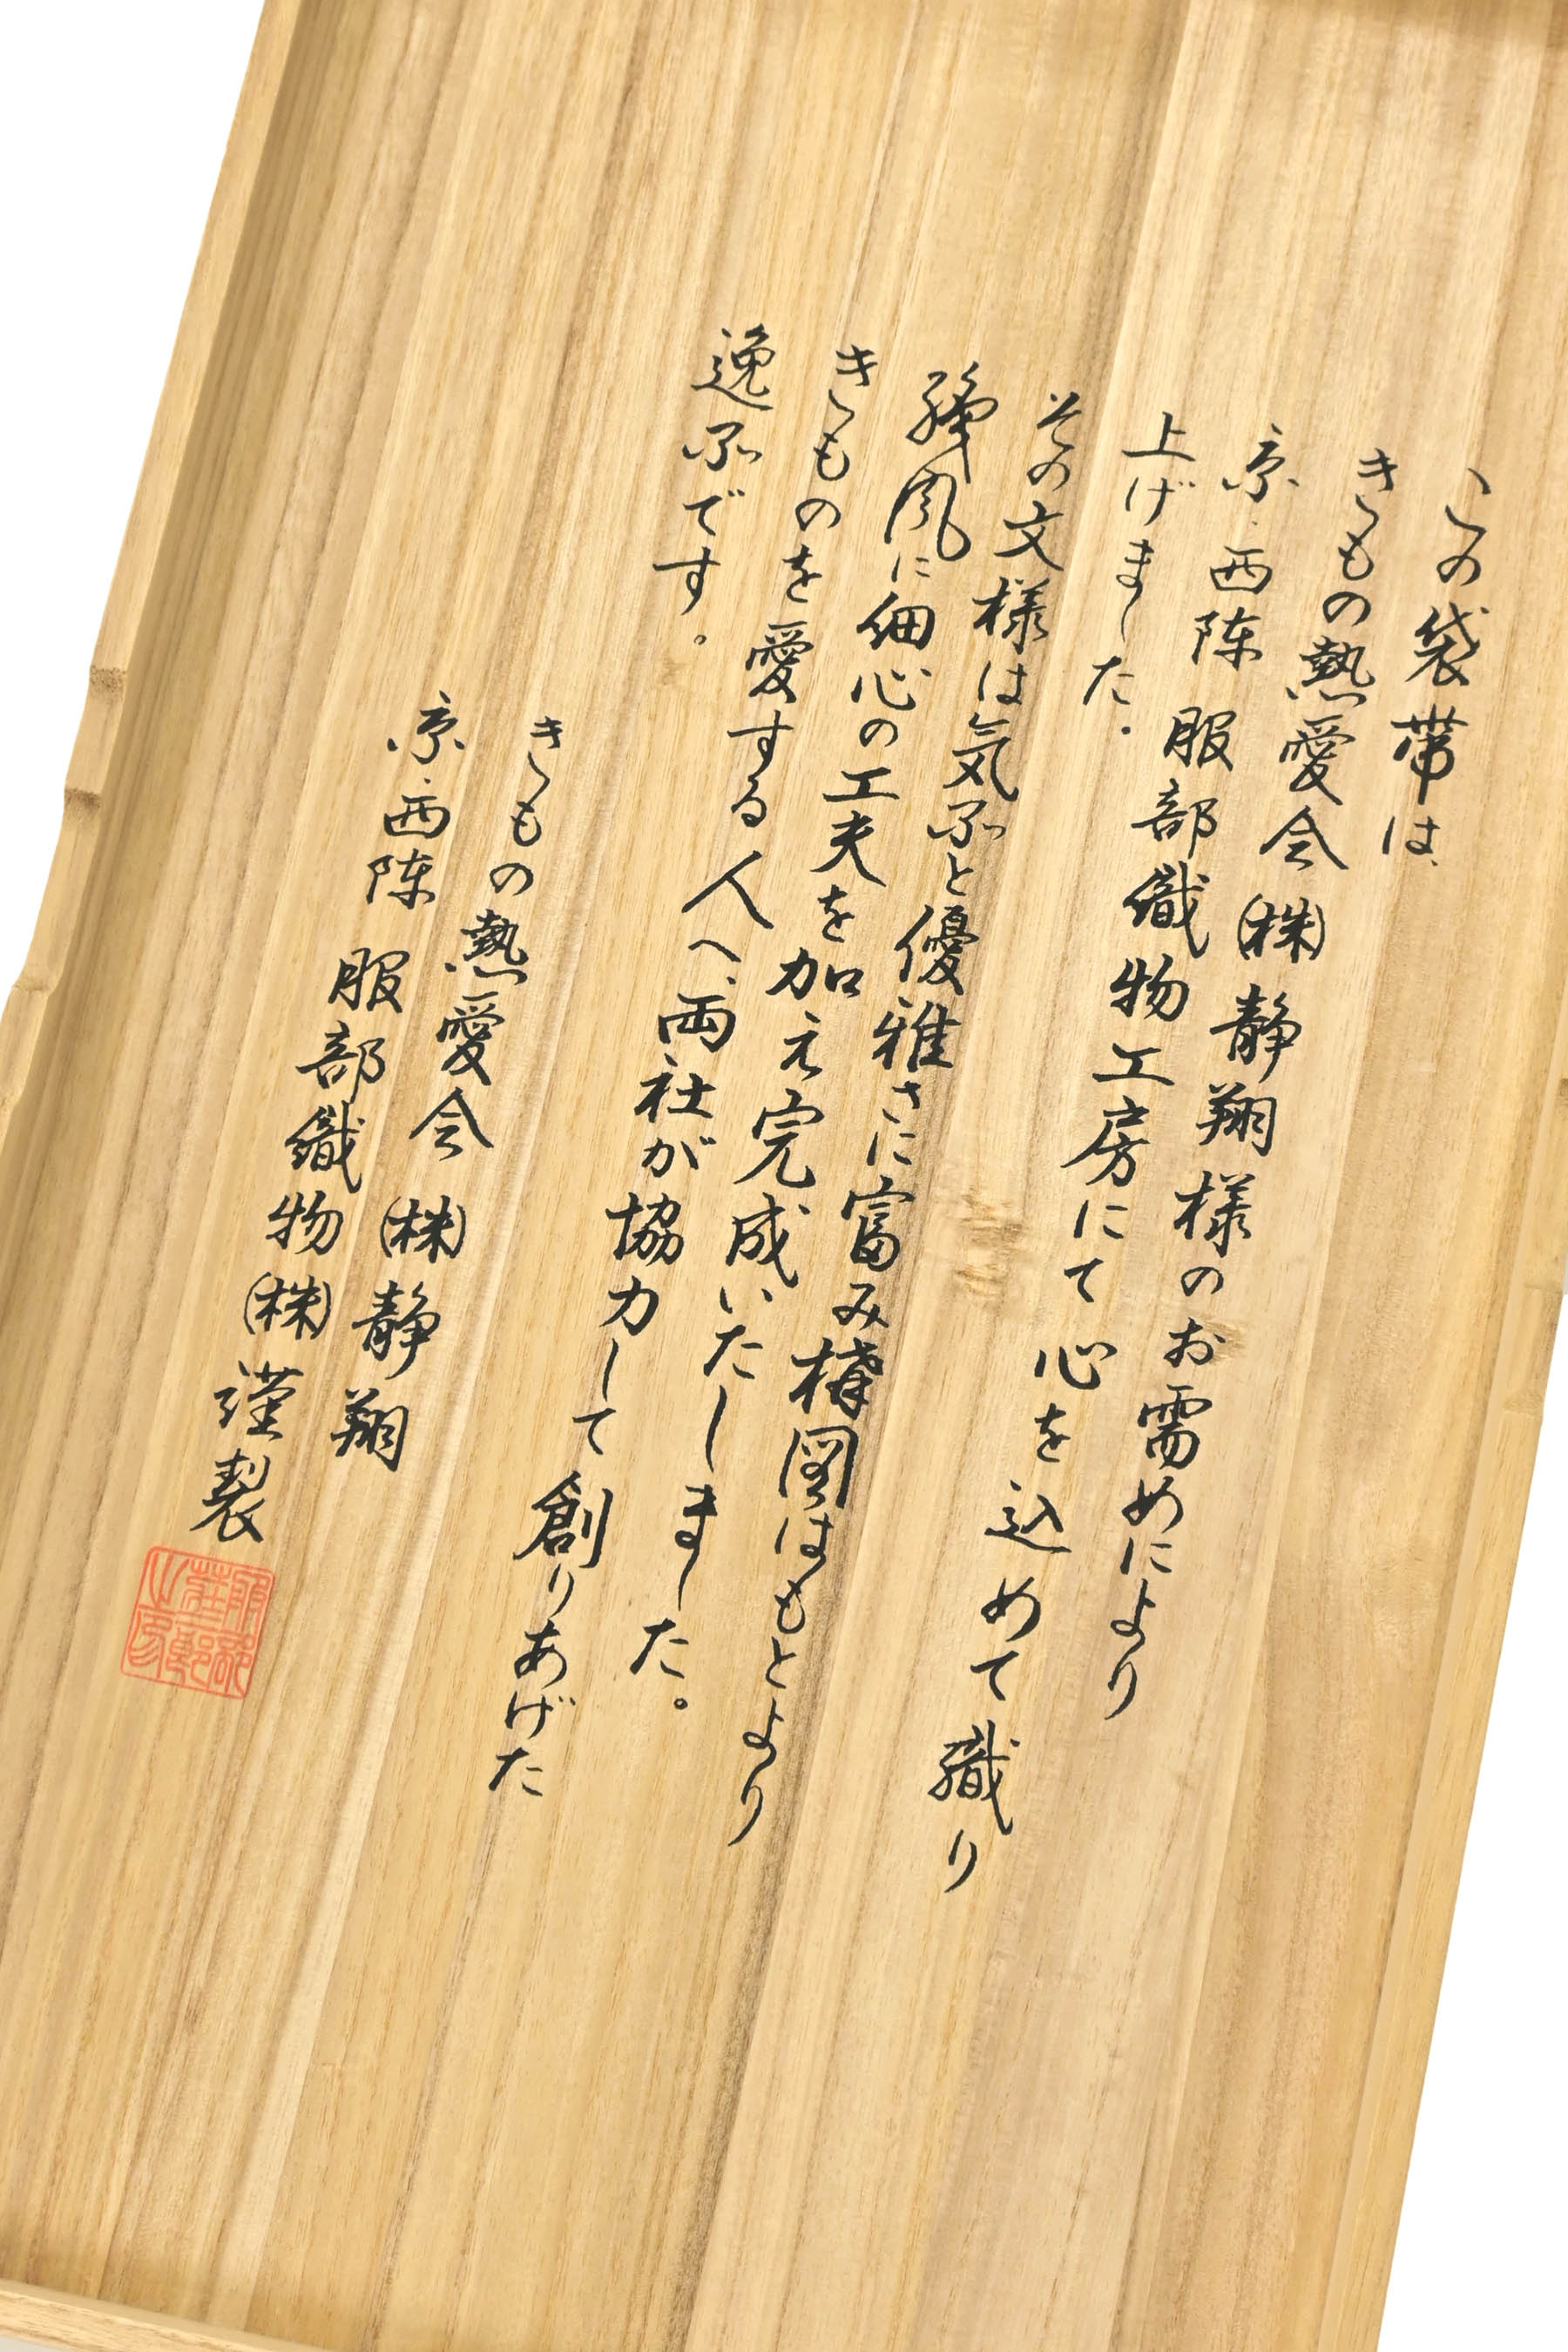 この袋帯は、
きもの熱愛会㈱静翔様のお需めにより
京・西陣 服部織物工房にて心を込めて織り
上げました。
その文様は気品と優雅さに富み構図はもとより
風に細心の工夫を加え完成いたしました。
きものを愛する人へ、両社が協力して創りあげた
逸品です。
きもの熱愛会 ㈱静翔
京・西陣 服部織物㈱謹製